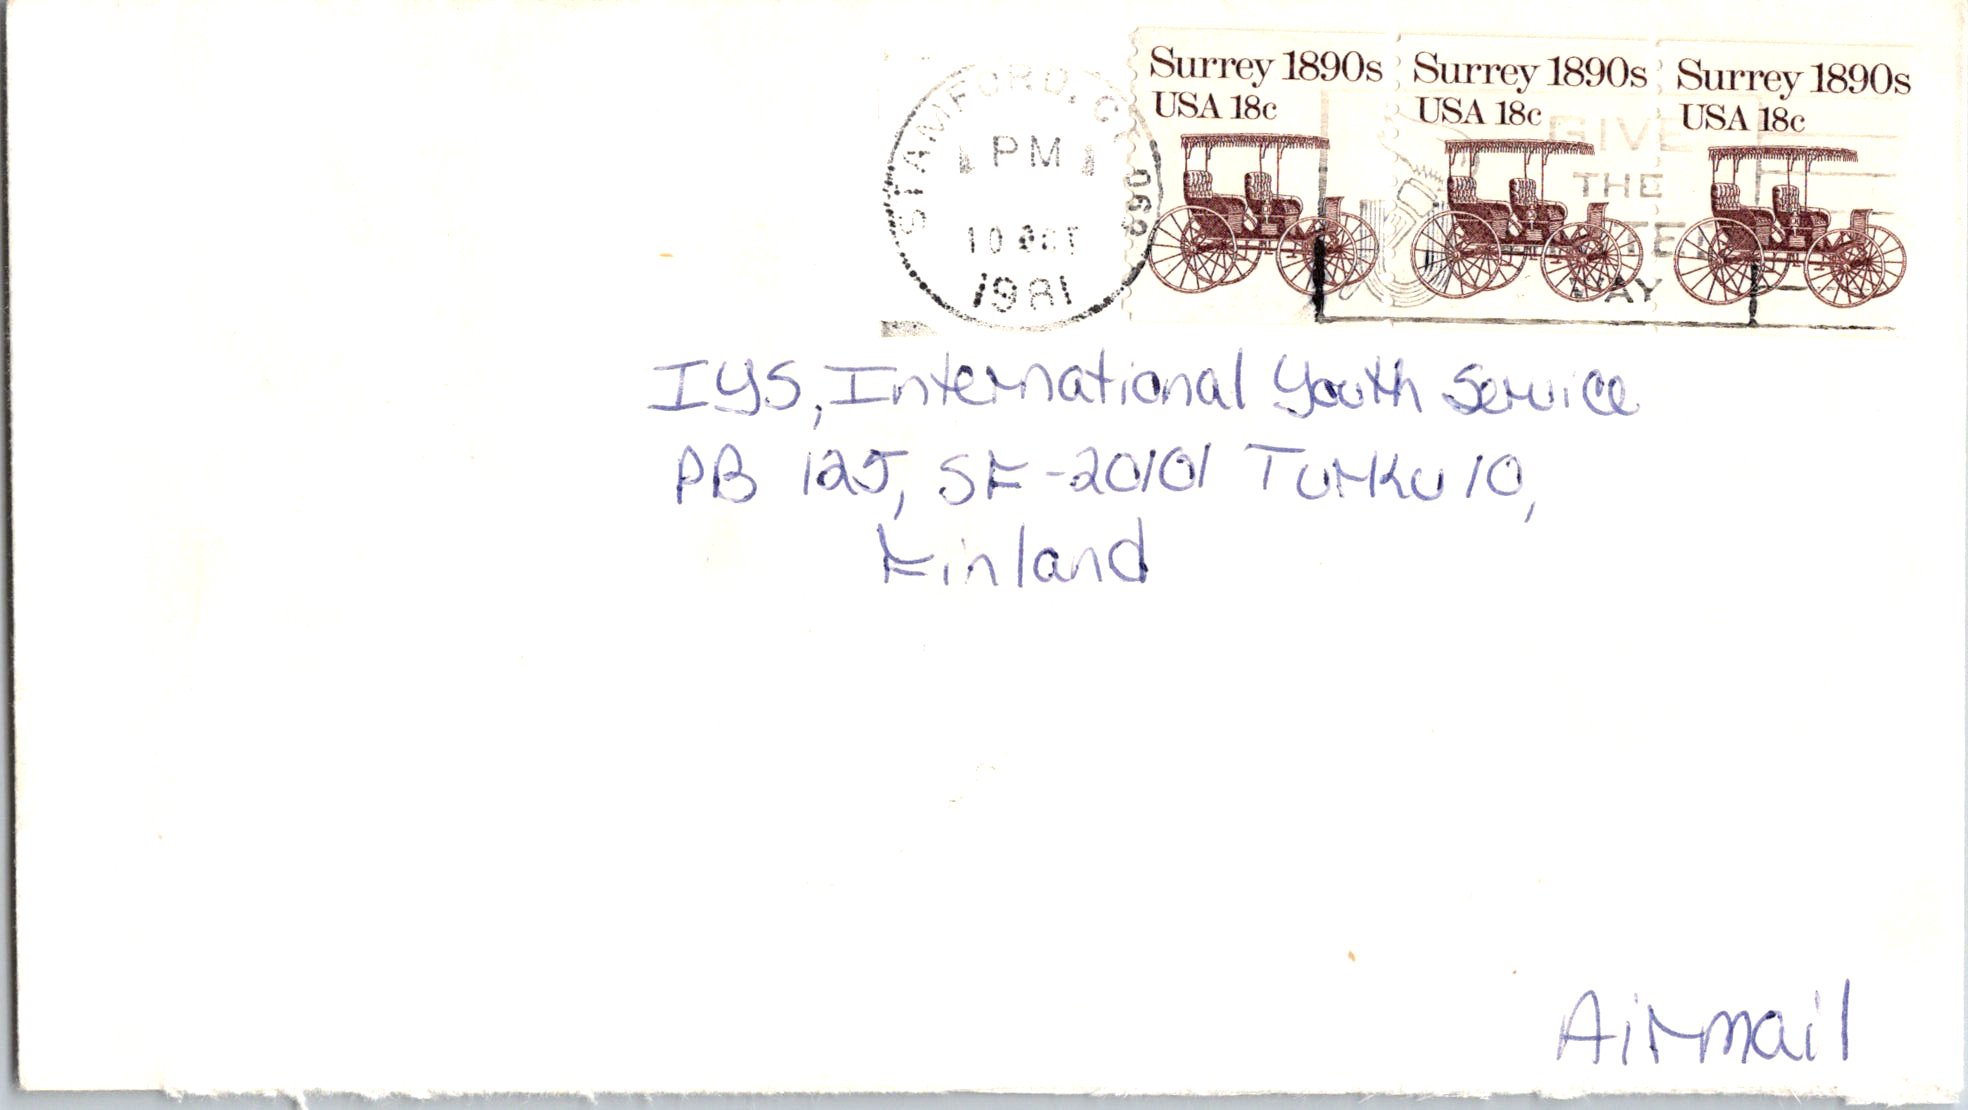 Surrey 1890s Surrey 1890s Surrey 1890s
USA 18c USA 18c USA 18c
STAMFORD, CT 069
PM
10 OCT
1981
GIVE
THE
WAY
IYS, International Youth Service
PB 125, SF-20101 Turku 10,
Finland
Airmail